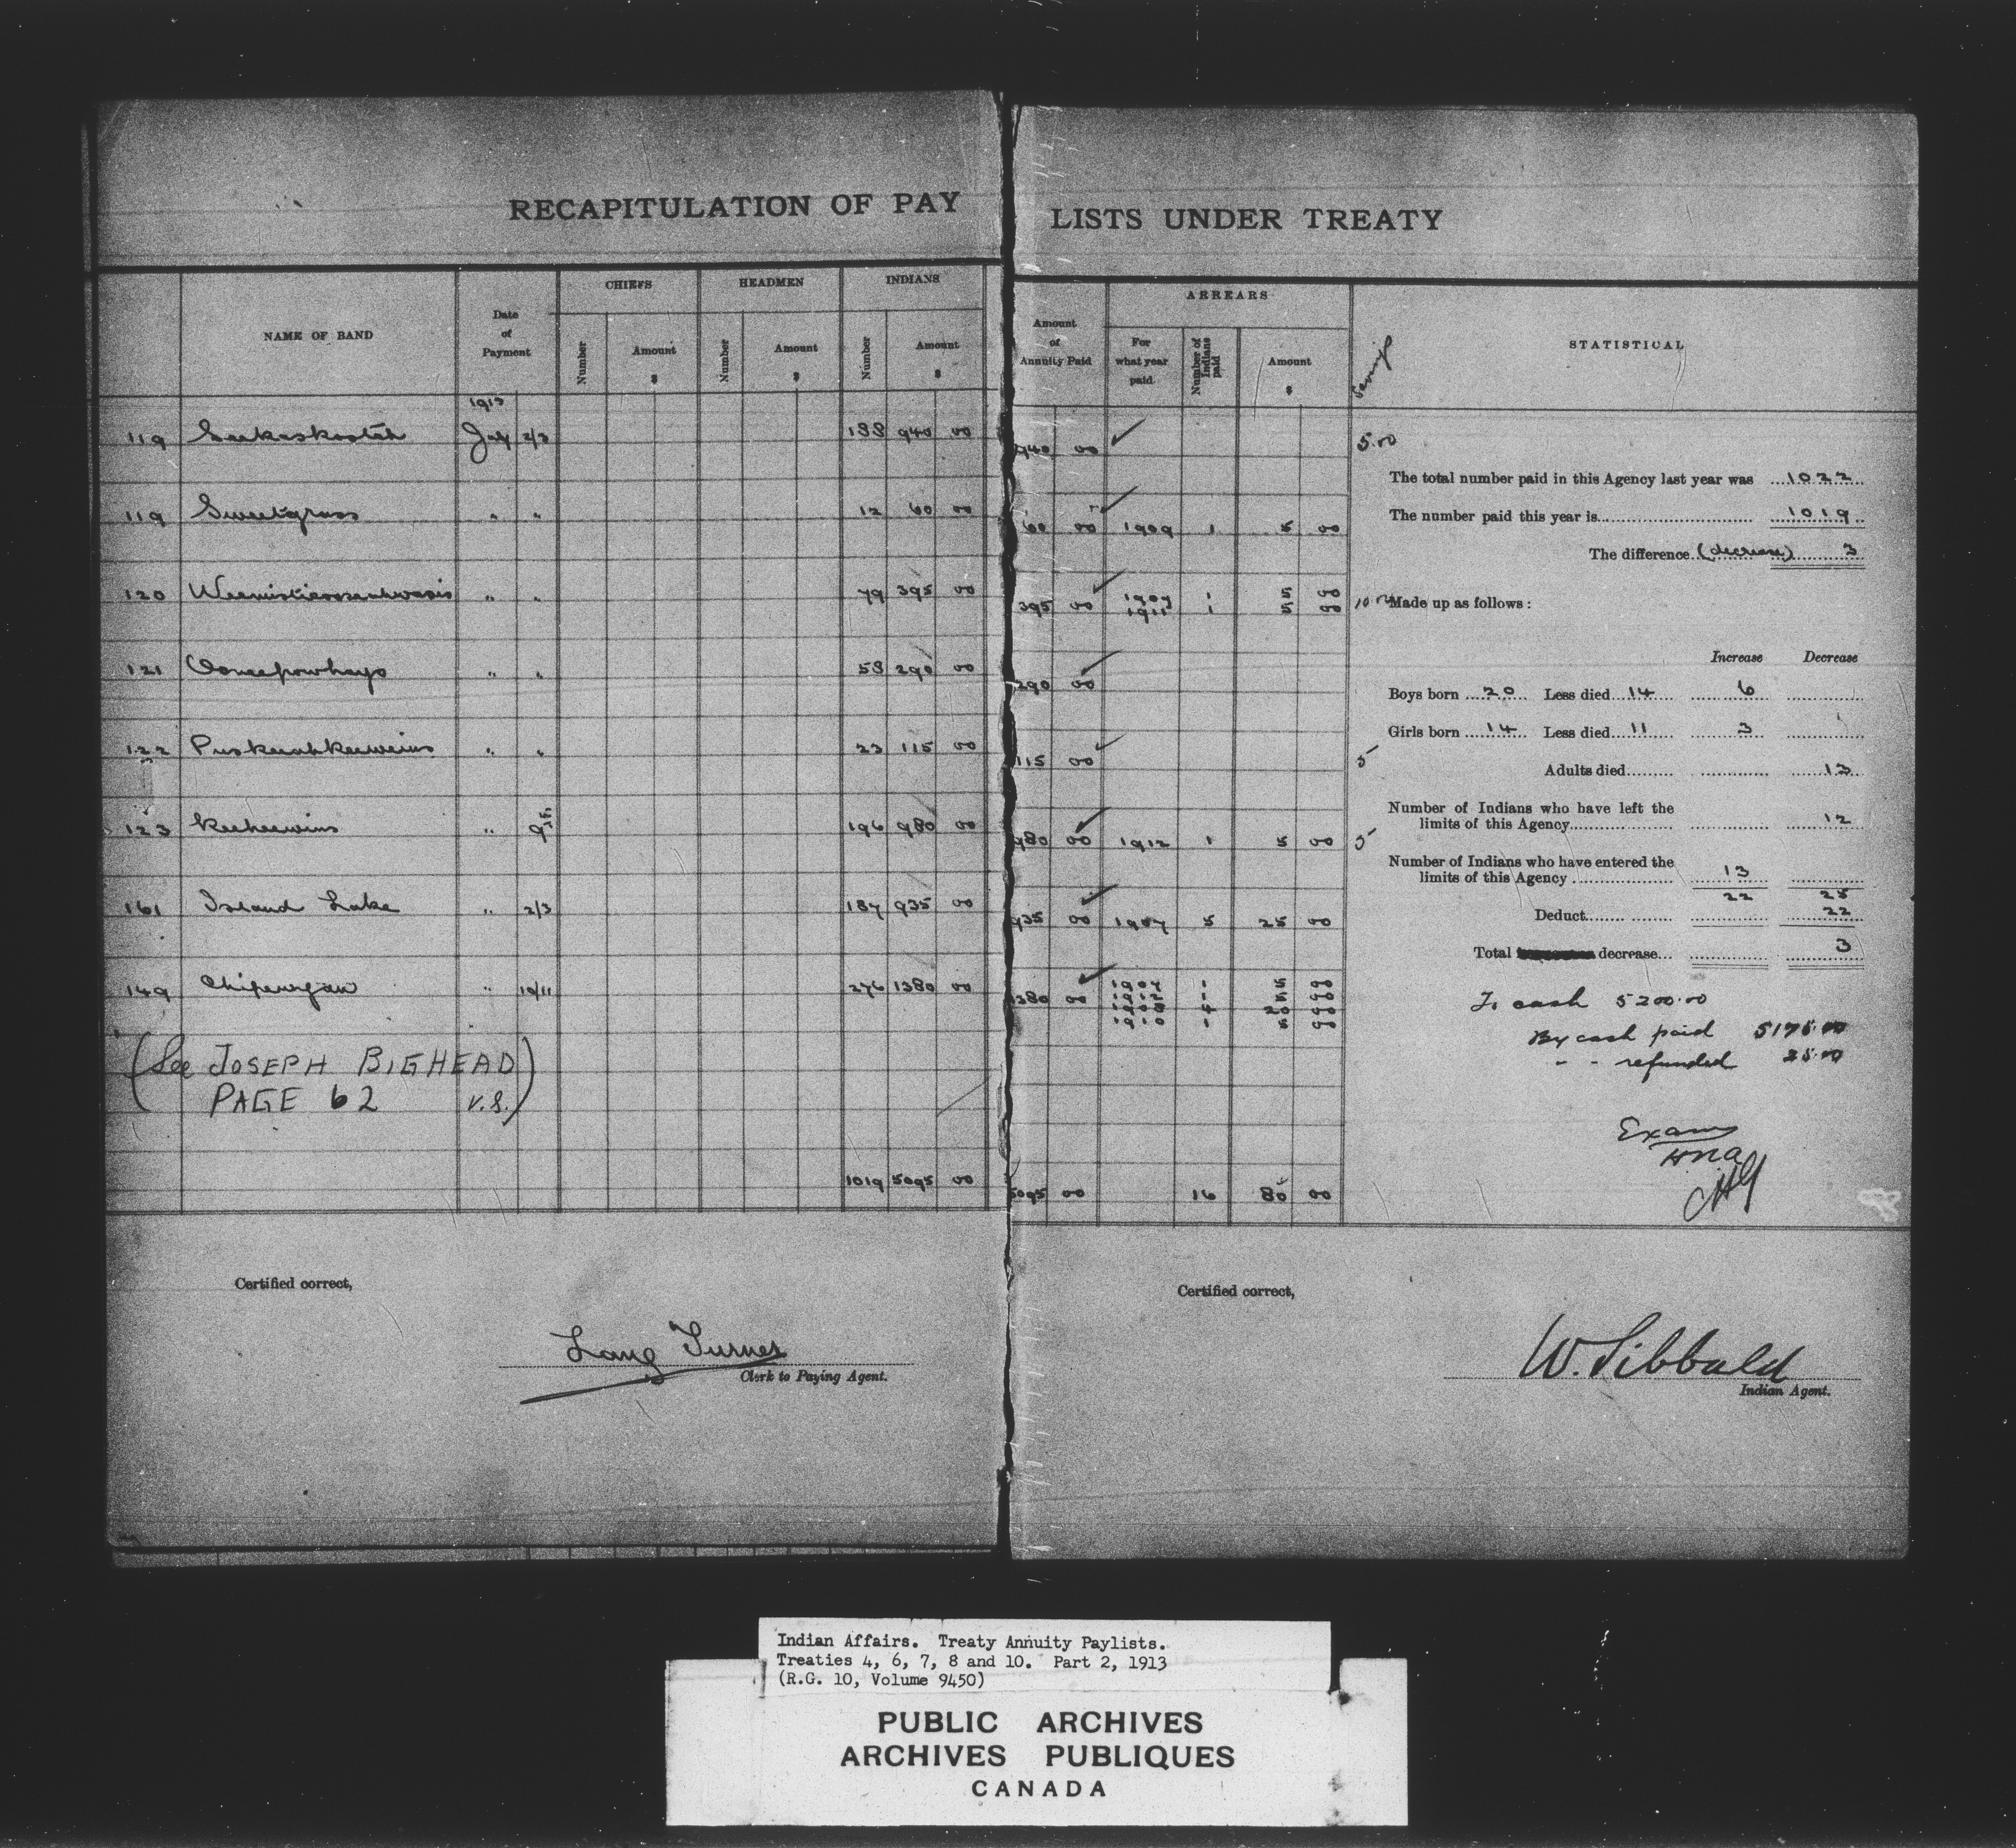 RECAPITULATION OF PAY LISTS UNDER TREATY
NAME OF BAND
Date of Payment
CHIEFS
Number
Amount $
HEADMEN
Number
Amount $
INDIANS
Number
Amount $
Amount of Annuity Paid
ARREARS
For what year paid
Number of Indians paid
Amount $
STATISTICAL
1913
119 Seekaskootch July 2/3 188 940 00 940 00 5.00
119 Sweetgrass " " 12 60 00 60 00 1909 1 5 00
120 " " 79 395 00 395 00 1907 1 5 00
1911 1 5 00
121 Ooneepowhayo " " 58 290 00 290 00
122 Puskeeahkeeweins " " 23 115 00 115 00 5
123 Keeheewins " 9th 196 980 00 980 00 1912 1 5 00 5
161 Island Lake " 2/3 187 935 00 935 00 1907 5 25 00
149 Chipewyan " 10/11 276 1380 00 1380 00
(See JOSEPH BIGHEAD
PAGE 62 V.S.)
1019 5095 00 5095 00 16 80 00
The total number paid in this Agency last year was 1022
The number paid this year is 1019
The difference (decrease) 3
Made up as follows:
Increase Decrease
Boys born 20 Less died 14 6
Girls born 14 Less died 11 3
Adults died 13
Number of Indians who have left the
limits of this Agency 12
Number of Indians who have entered the
limits of this Agency 13
22 25
Deduct 22
Total decrease 3
To cash 5200.00
By cash paid 5175.00
" " refunded 25.00
Exam
H.N.A.
Certified correct,
Lang Turner
Clerk to Paying Agent.
Certified correct,
W. Sibbald
Indian Agent.
Indian Affairs. Treaty Annuity Paylists.
Treaties 4, 6, 7, 8 and 10. Part 2, 1913
(R.G. 10, Volume 9450)
PUBLIC ARCHIVES
ARCHIVES PUBLIQUES
CANADA